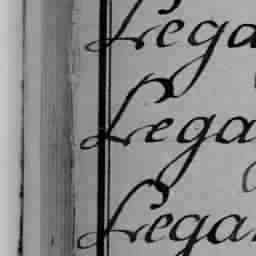 Lega
Lega
Legar